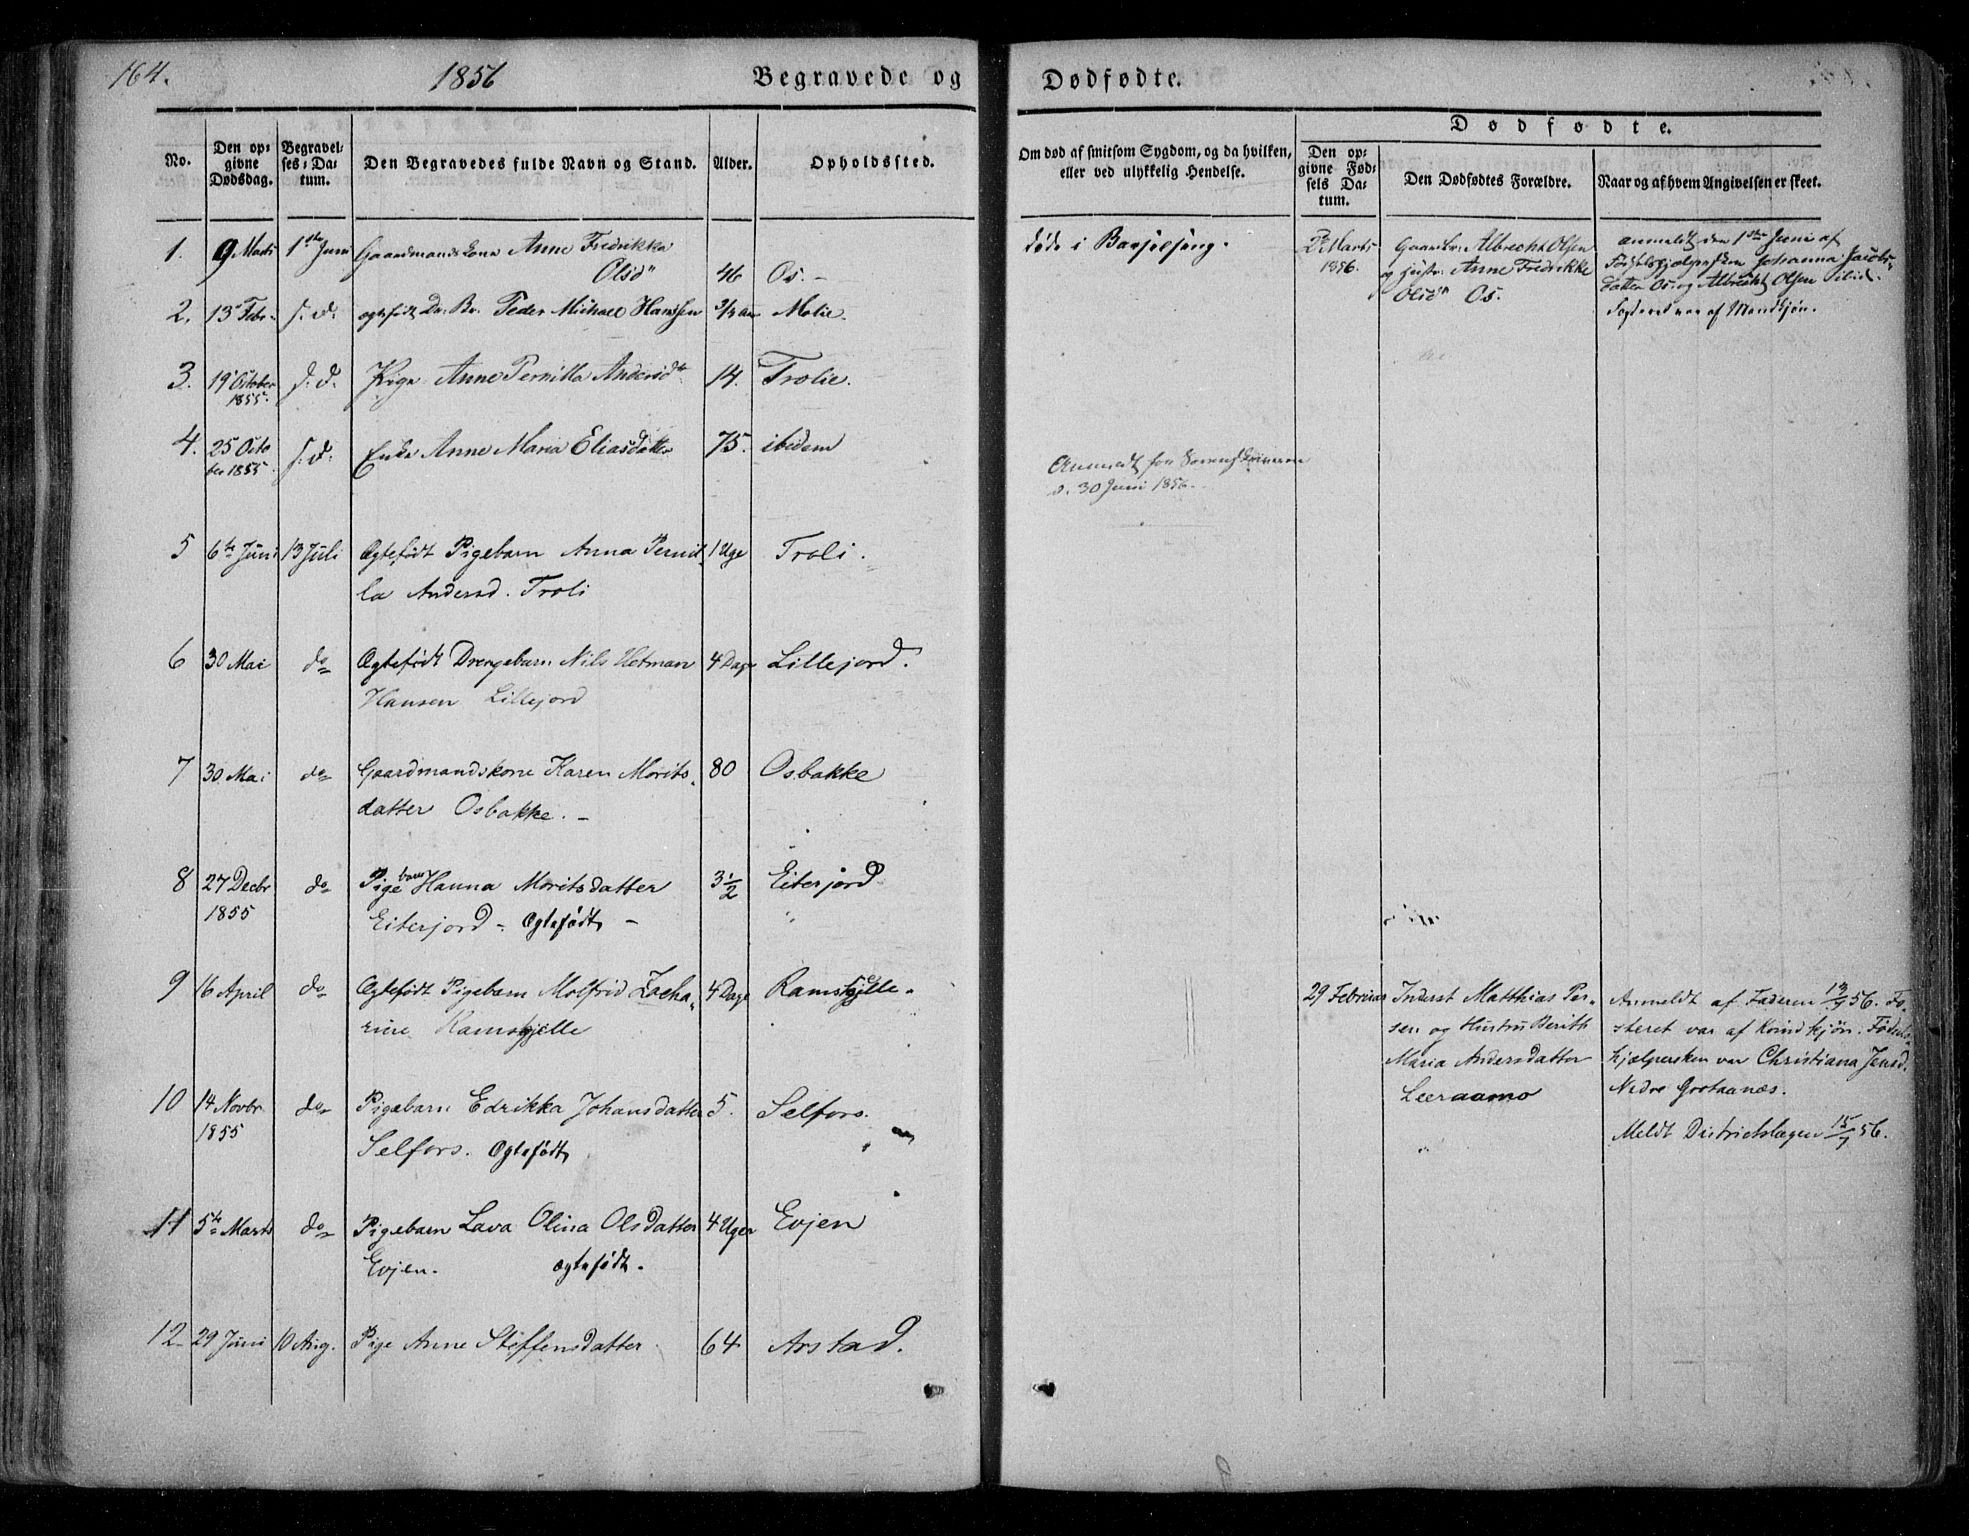 164.
1856
Begravede og
Dødfødte.
No.
Den op-
givne
Dødsdag.
Begravel-
ses-Da-
tum.
Den Begravedes fulde Navn og Stand.
Alder.
Opholdssted.
Om død af smitsom Sygdom, og da hvilken,
eller ved ulykkelig Hendelse.
Dødfødte.
Den op-
givne Fød-
sels Da-
tum.
Den Dødfødtes Forældre.
Naar og af hvem Angivelsen er skeet.
1. 9 Marts 1ste Juni Gaardmandskone Anne Fredrikka
Olsdr 46 Os. -
døde i Barselseng.
2den Marts
1856.
Gaardbr. Albrecht Olsen
og Hustr. Anne Fredrikke
Olsdr Os.
anmeldt den 1ste Juni af
Fødselshjælpersken Johanna Jacobs-
datter Os. og Albrecht Olsen ibid.
Fosteret var af Mandkjøn.
2. 13 Febr. s. d. ægtefødt Dr. Br. Peder Michael Hansen 3/4 Aar Molie.
3. 19 October
1855. s. d. Pige Anne Pernilla Andersdtr 14. Trolie.
4. 25 Octo
ber 1855 s. d. Enke Anne Maria Eliasdatter 75. ibidem
Anmeldt for Sorenskriveren
d. 30 Juni 1856.
5 6te Juni 13 Juli Ægtefødt Pigebarn Anna Pernil 1 Uge Troli.
la Andersd. Troli
6 30 Mai do Ægtefødt Drengebarn Nils Hetman 4 Dage Lillejord.
Hansen Lillejord
7 30 Mai do Gaardmandskone Karen Morits- 80 Osbakke
datter Osbakke. -
8 27 Decbr
1855 do Pigebarn Hanna Moritsdatter 3 1/2 Eiterjord
Eiterjord - Ægtefødt -
9 16 April do Ægtefødt Pigebarn Molfrid Zacha- 4 Dage Ramsgjelle.
rine Ramsgjelle
29 Februar
Inderst Matthias Per-
sen og Hustru Berith
Maria Andersdatter
Leeraamo
Anmeldt af Faderen 13/7 56. Fo-
steret var af Kvindkjøn. Fødsels-
hjælpersken var Christiana Jensd.
Nedre Grotaanæs.
Meldt Districtslægen 15/7 56.
10 14 Novbr
1855 do Pigebarn Edrikka Johansdatter 5. Selfors.
Selfors. Ægtefødt
11 5te Marts do Pigebarn Lava Olina Olsdatter 4 Uger Evjen
Evjen. ægtefødt.
12 29 Juni 10 Aug. Pige Anne Steffensdatter 64 Arstad.